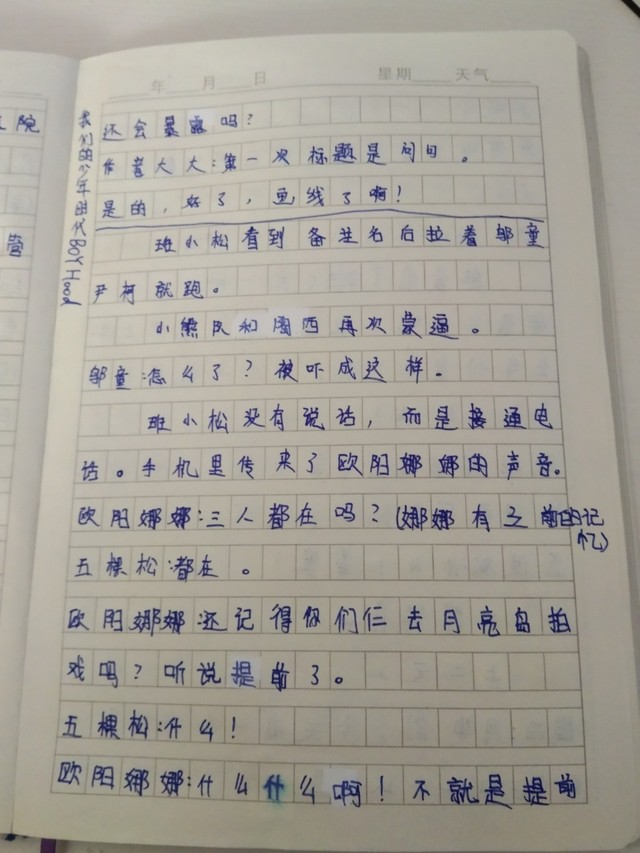 年 月 日 星期 天气
我们的少年时代BOY Hood
院
营
还会暴露吗？
作者大大：第一次标题是问句。
是的，好了，画线了啊！
班小松看到备注名后拉着邬童
尹柯就跑。
小熊队和陶西再次蒙逼。
邬童：怎么了？被吓成这样。
班小松没有说话，而是接通电
话。手机里传来了欧阳娜娜的声音。
欧阳娜娜：三人都在吗？(娜娜有之前的记忆)
五棵松：都在。
欧阳娜娜：还记得你们仨去月亮岛拍
戏吗？听说提前了。
五棵松：什么！
欧阳娜娜：什么什么啊！不就是提前